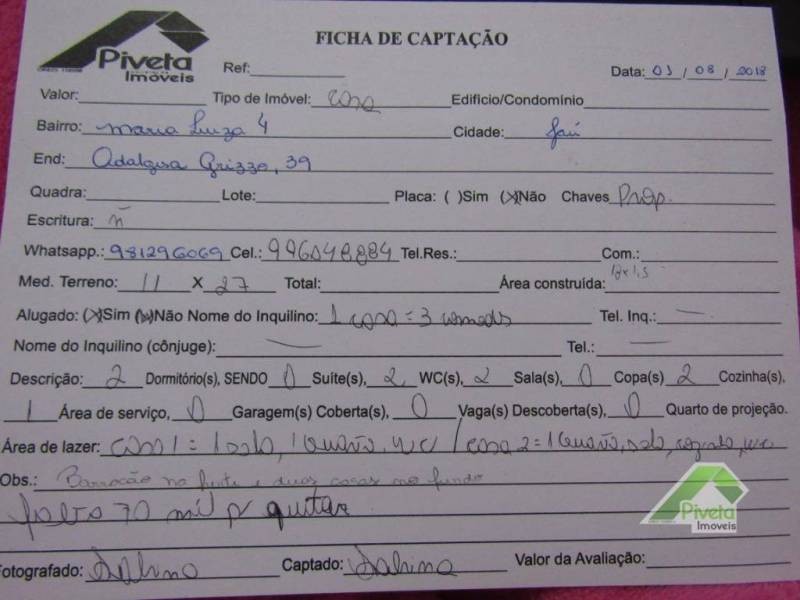 Piveta
Imóveis
FICHA DE CAPTAÇÃO
Ref: Data: 01 / 08 / 2018
Valor: Tipo de Imóvel: casa Edificio/Condomínio
Bairro: Maria Luiza 4 Cidade: Jaú
End: Adalgisa Grizzo, 39
Quadra: Lote: Placa: ( )Sim (X)Não Chaves Prop.
Escritura: ñ
Whatsapp.: 981296069 Cel.: 996048884 Tel.Res.: Com.:
Med. Terreno: 11 X 27 Total: Área construída:
Alugado: (X)Sim ( )Não Nome do Inquilino: 1 casa = 3 comodos Tel. Inq.: —
Nome do Inquilino (cônjuge): — Tel.: —
Descrição: 2 Dormitório(s), SENDO 0 Suíte(s), 2 WC(s), 2 Sala(s), 0 Copa(s) 2 Cozinha(s),
1 Área de serviço, 0 Garagem(s) Coberta(s), 0 Vaga(s) Descoberta(s), 0 Quarto de projeção.
Área de lazer: casa 1 = 1 sala, 1 Quarto, wc / casa 2 = 1 Quarto, sala, cozinha, wc
Obs.: Barracão na frente e duas casas no fundo
falta 70 mil p/ quitar
Fotografado: Sabino Captado: Sabino Valor da Avaliação:
Piveta
Imóveis